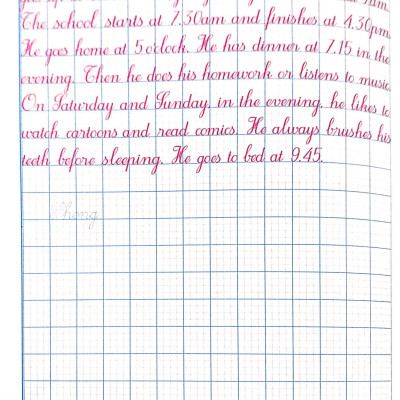 The school starts at 7.30am and finishes at 4.30pm
He goes home at 5 o'clock. He has dinner at 7.15 in the
evening. Then he does his homework or listens to music.
On Saturday and Sunday, in the evening, he likes to
watch cartoons and read comics. He always brushes his
teeth before sleeping. He goes to bed at 9.45.